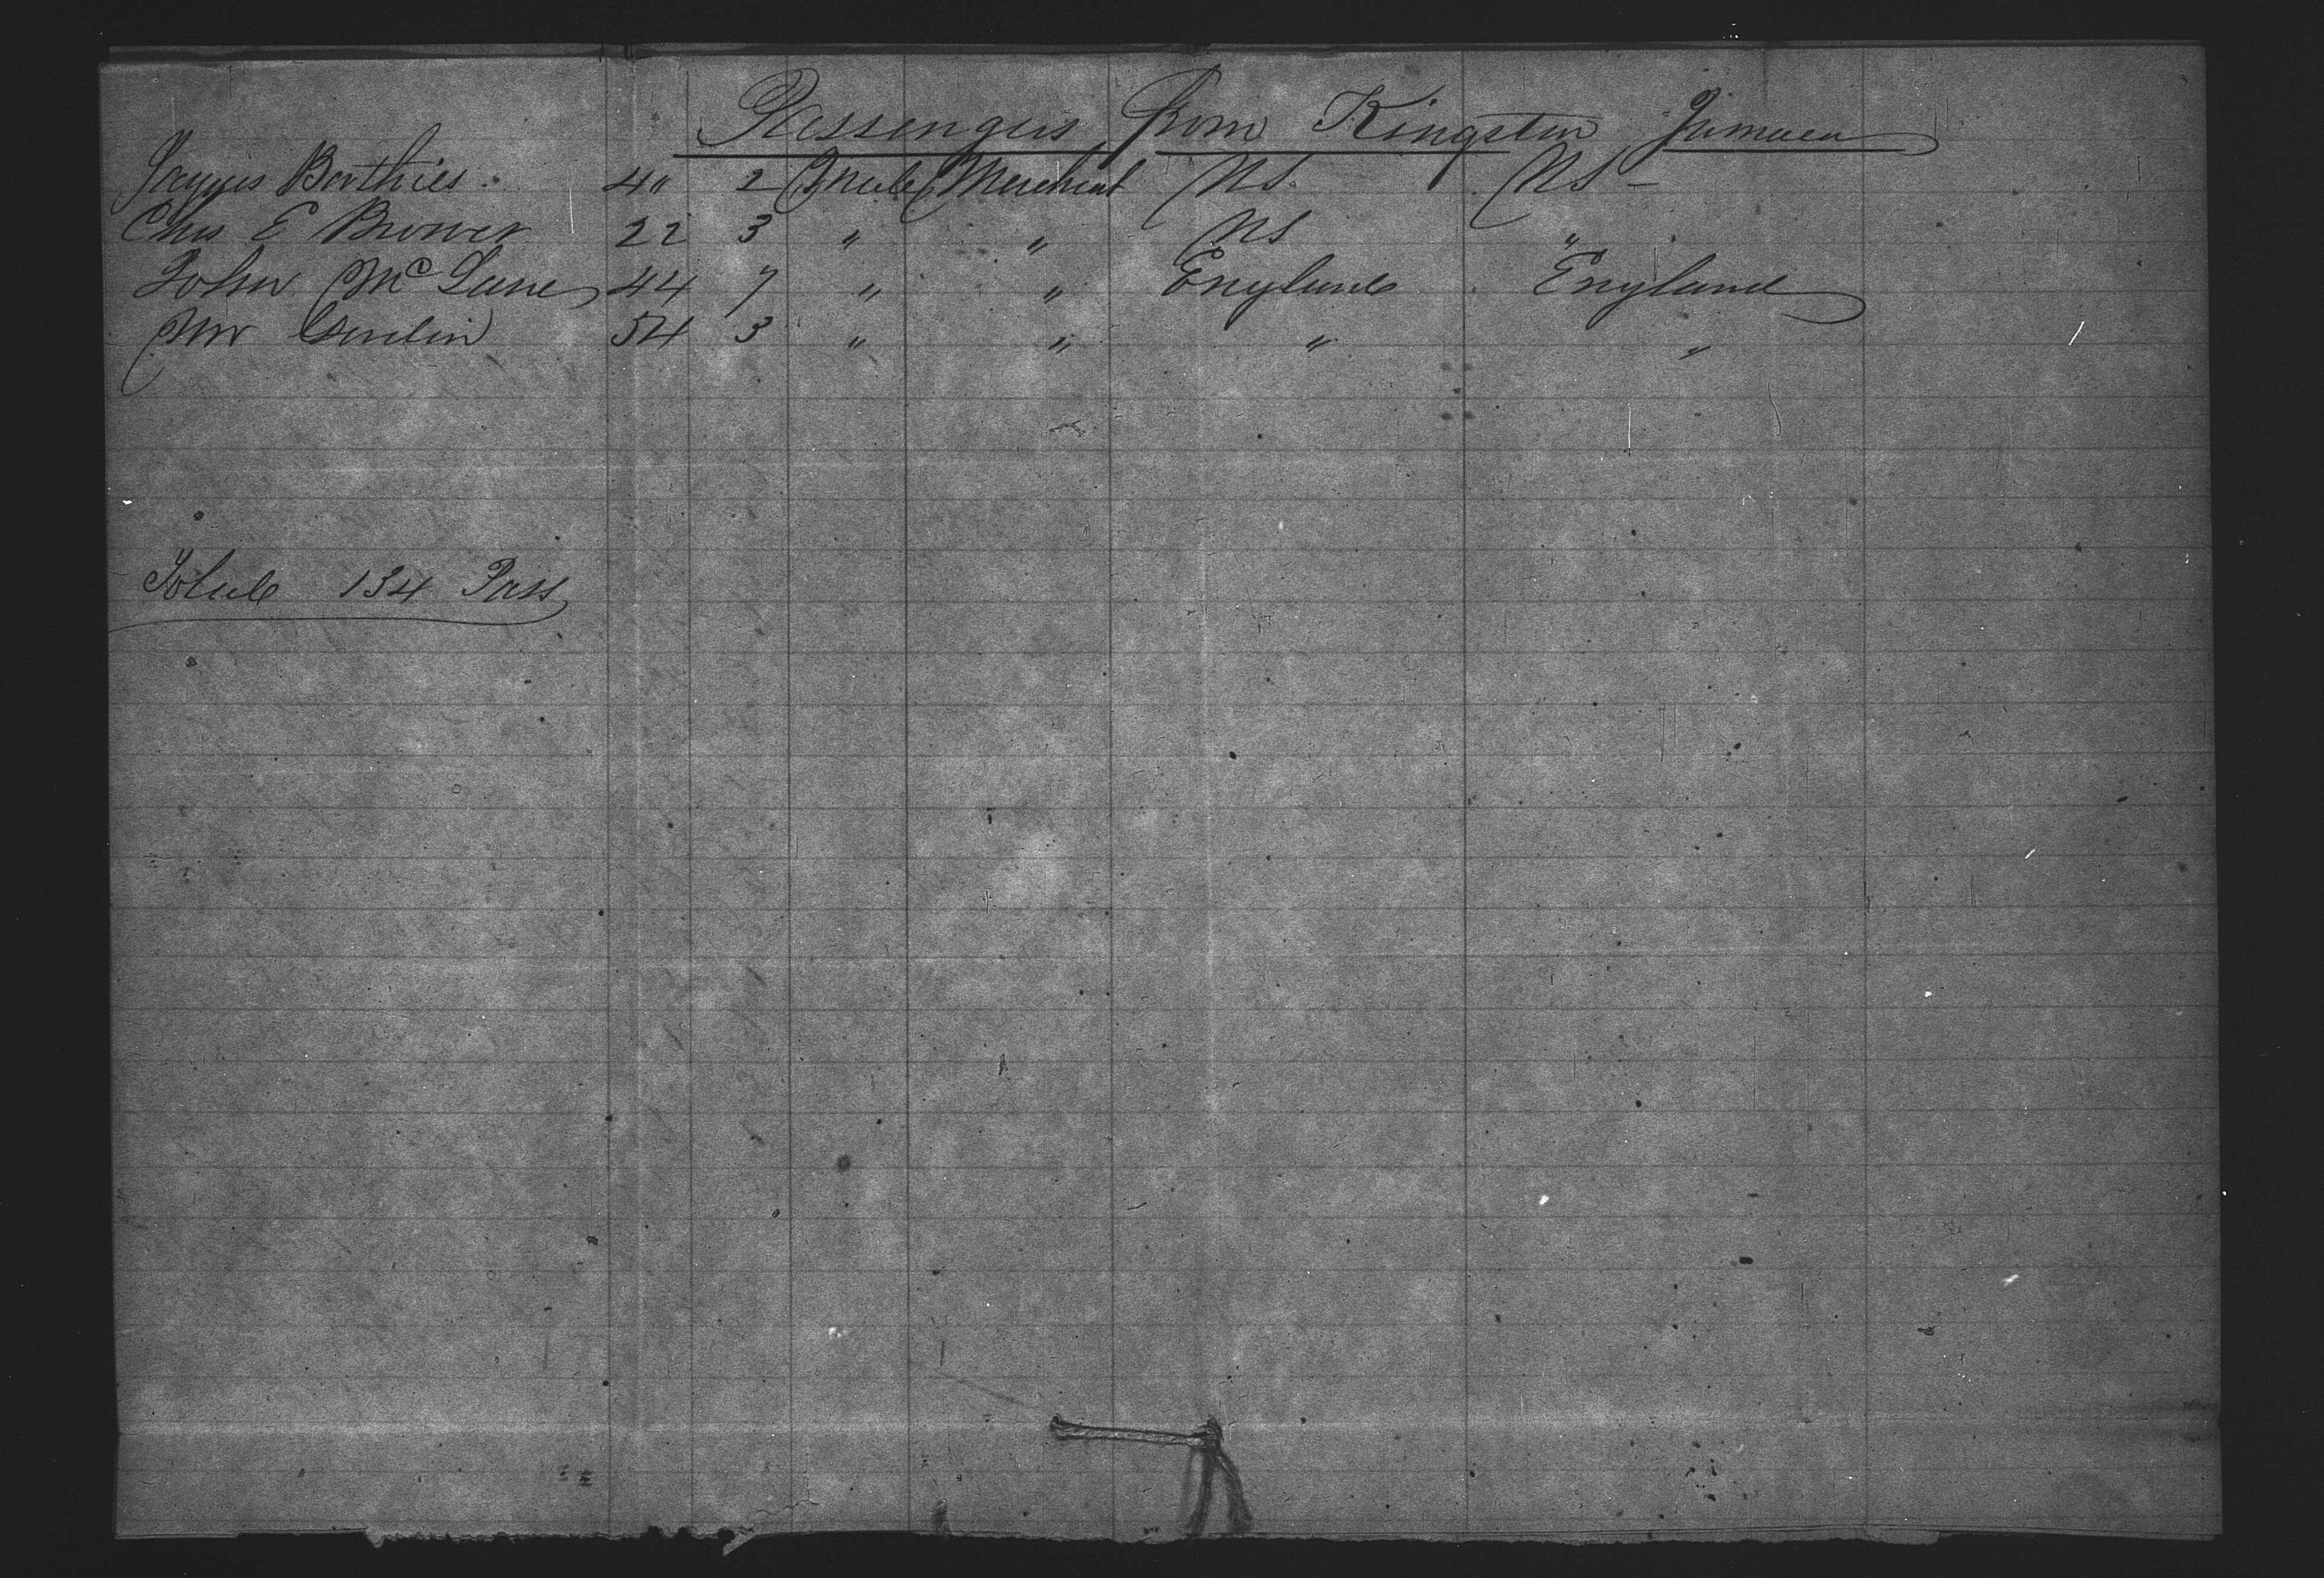 Passengers from Kingston Jamaica
Berthier 4" 2 Male Merchant US US
Chas E Brower 22 3 " " US "
John McLane 44 7 " " England England
Mr 54 3 " " " "
Total 134 Pass